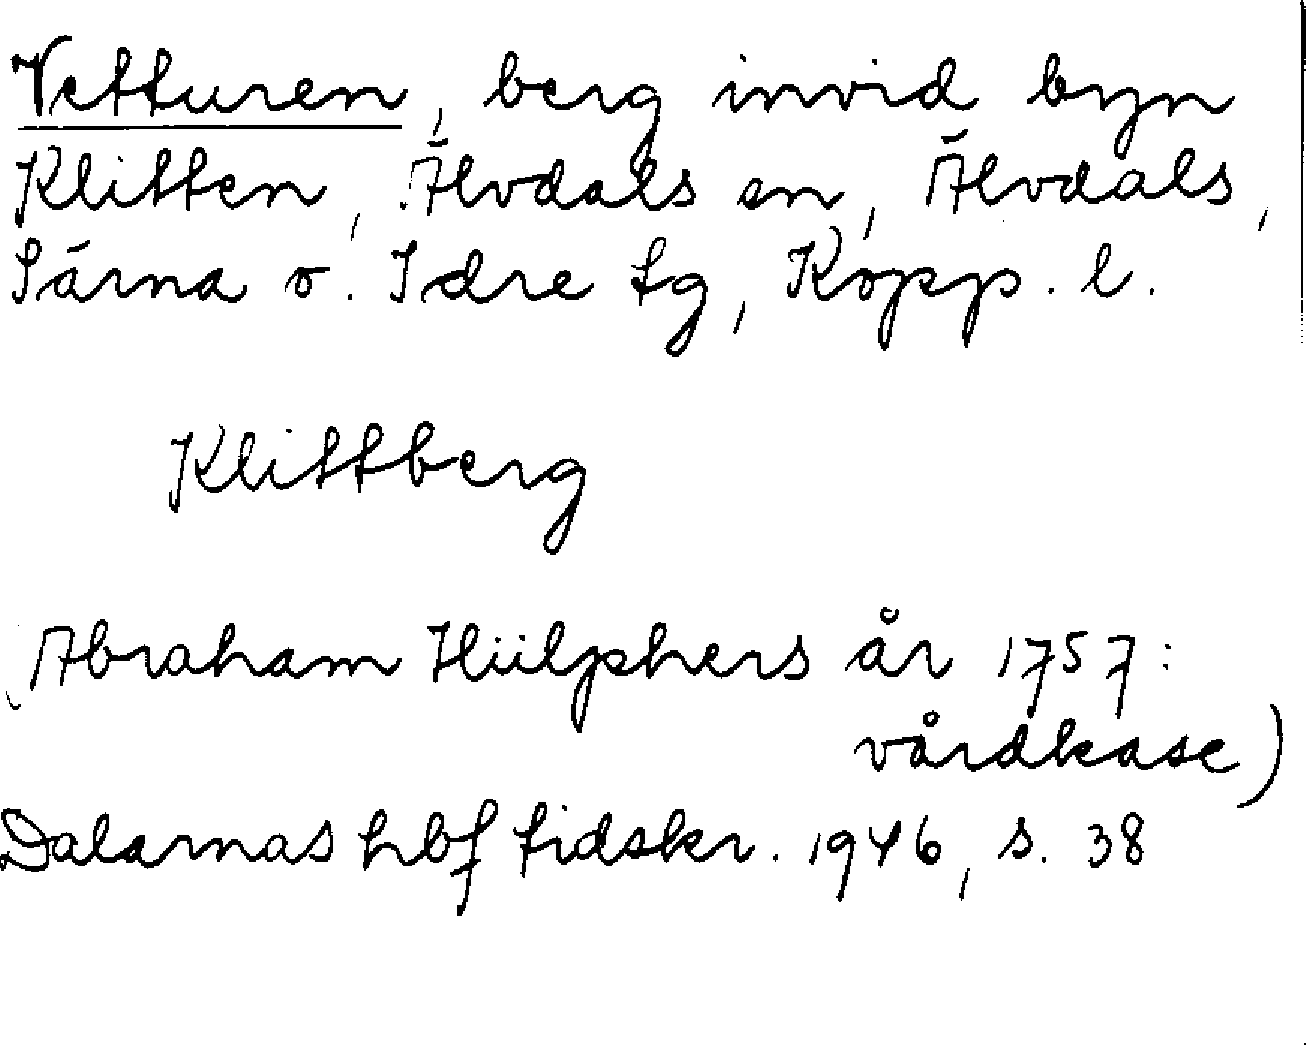 Vetturen, berg invid byn
Klitten, Älvdals sn, Älvdals,
Särna o. Idre tg, Kopp. l.
Klittberg
(Abraham Hülphers år 1757:
vårdkase)
Dalarnas hbf tidskr. 1946, s. 38